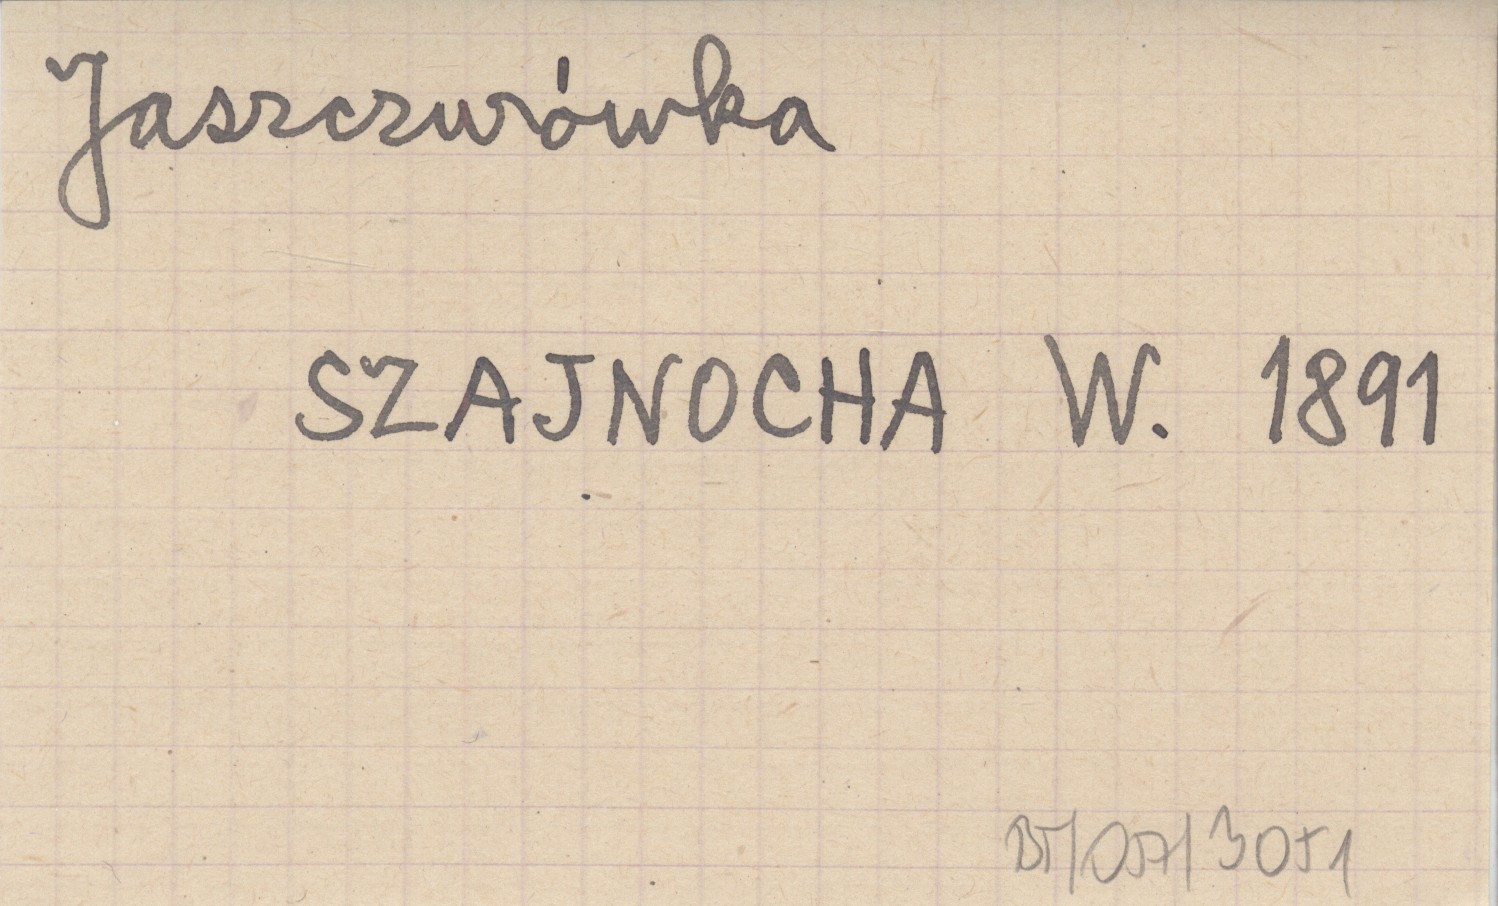 Jaszczurówka
SZAJNOCHA W. 1891
BT/057/3051